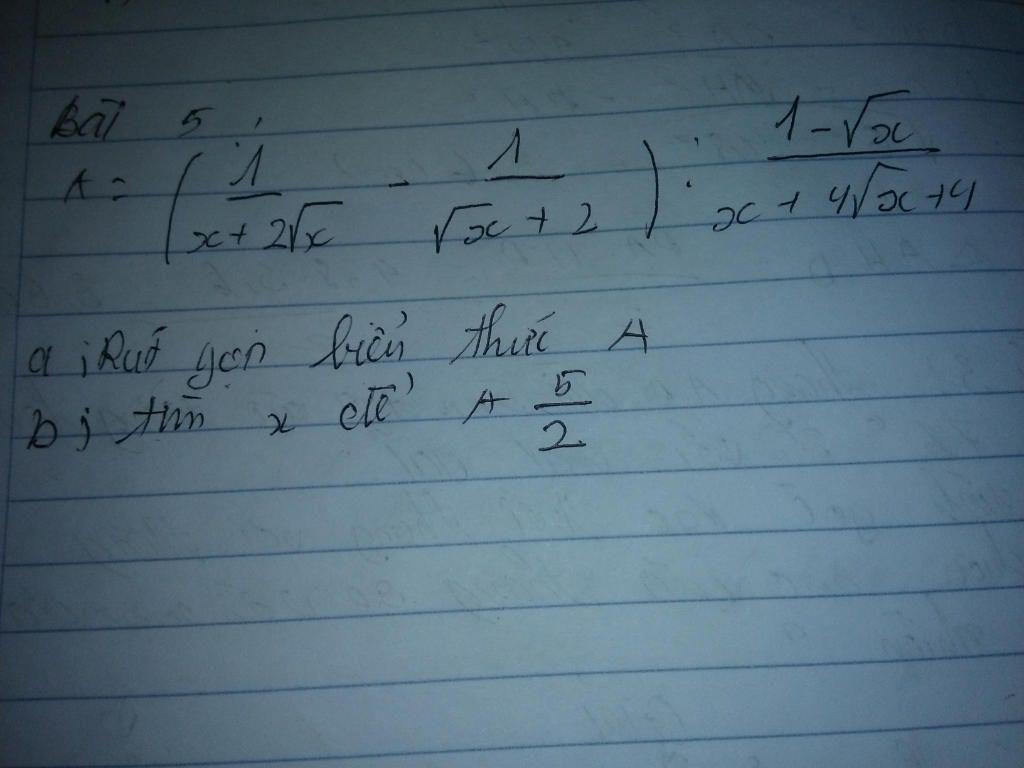 Bài 5 :
A = ( 1/(x + 2√x) - 1/(√x + 2) ) : (1 - √x)/(x + 4√x + 4)
a ; Rút gọn biểu thức A
b ; tìm x để A 5/2